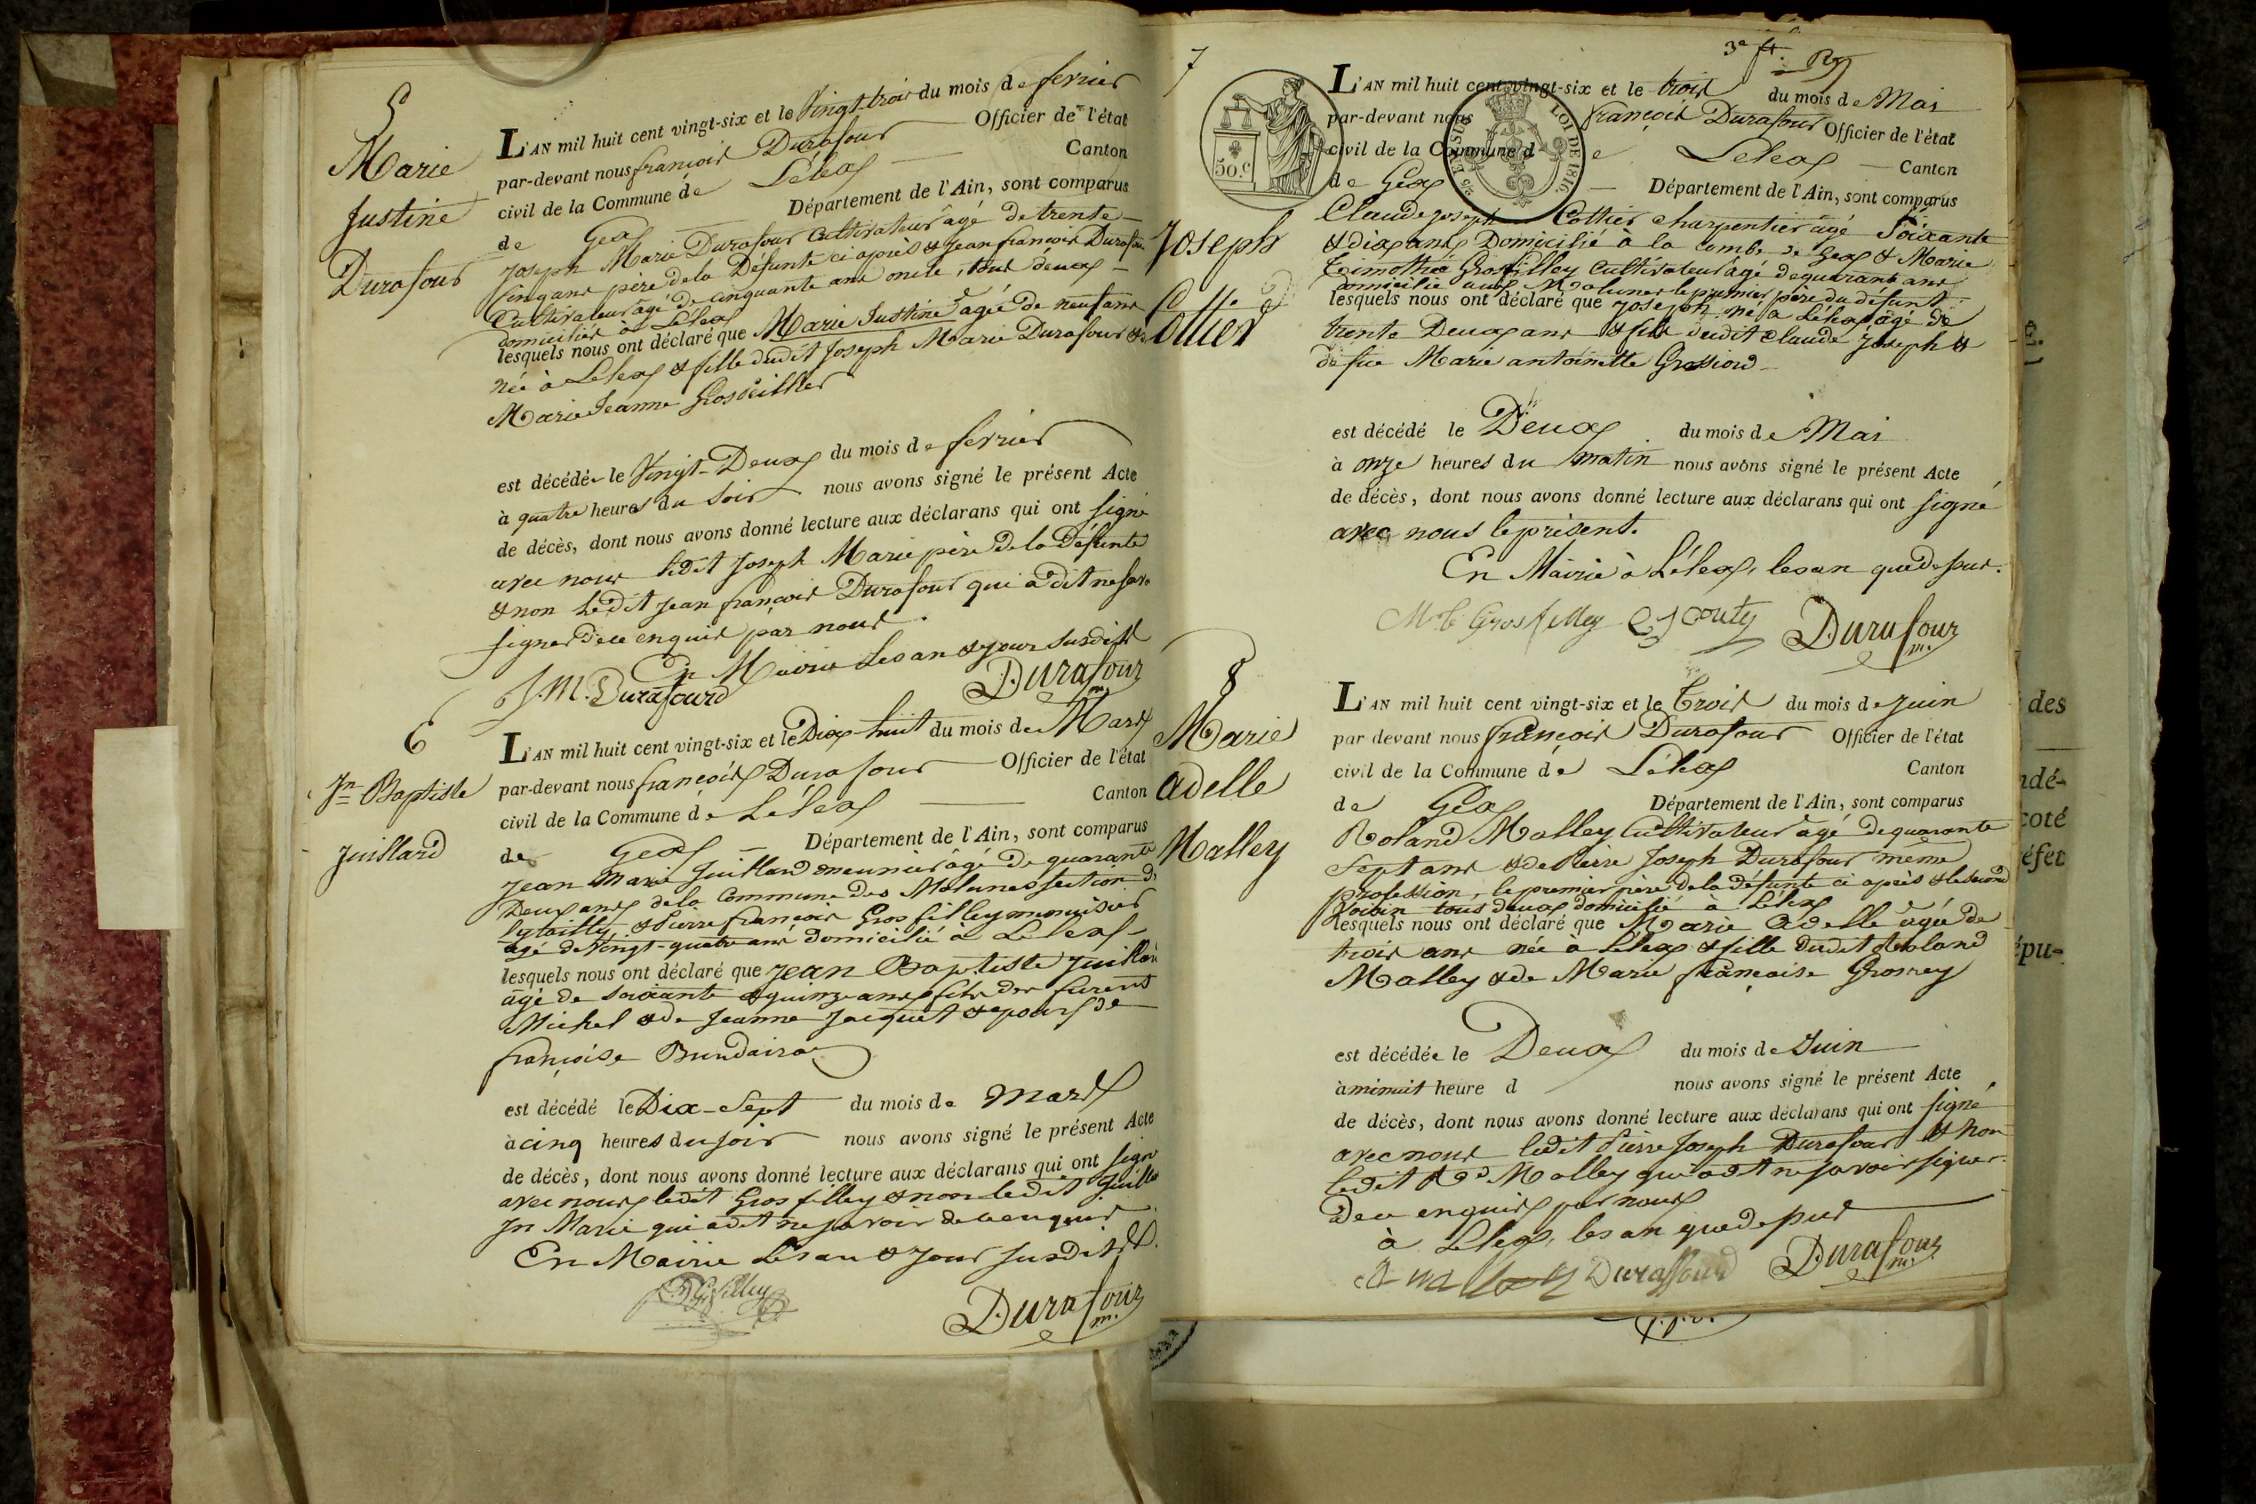 5
Marie
Justine
Durafour
L'AN mil huit cent vingt-six et le vingt-trois du mois de fevrier
par-devant nous françois Durafour Officier de l'état
civil de la Commune de Lélex Canton
de Gex Département de l'Ain, sont comparus
Joseph Marie Durafour cultivateur âgé de trente
cinq ans père de la Défunte ci après & Jean françois Durafour
Cultivateur âgé de cinquante ans oncle, tous deux
domiciliés à Lélex
lesquels nous ont déclaré que Marie Justine âgée de neuf ans
née à Lelex & fille dudit Joseph Marie Durafour & de
Marie Jeanne
est décédée le Vingt-Deux du mois de fevrier
à quatre heures du soir nous avons signé le présent Acte
de décès, dont nous avons donné lecture aux déclarans qui ont signé
avec nous ledit Joseph Marie père de la défunte
& non ledit jean françois Durafour qui a dit ne savoir
signer de ce enquis par nous.
En Mairie les an & jour susdits
J.M. Durafourd Durafour m.
6
Jn Baptiste
Juillard
L'AN mil huit cent vingt-six et le Dix huit du mois de Mars
par-devant nous françois Durafour Officier de l'état
civil de la Commune de Lélex Canton
de Gex Département de l'Ain, sont comparus
Jean Marie Juillard meunier âgé de quarante
Deux ans de la Commune des Molunes section de
& Pierre françois Gros filley menuisier
âgé de Vingt-quatre ans domicilié à Lelex
lesquels nous ont déclaré que Jean Baptiste Juillard
âgé de soixante & quinze ans fils des furent
Michel & de Jeanne Jacquet & epoux de
françoise
est décédé le Dix-Sept du mois de Mars
à cinq heures du soir nous avons signé le présent Acte
de décès, dont nous avons donné lecture aux déclarans qui ont signé
avec nous ledit Gros filley & non ledit Juillard
Jn Marie qui a dit ne savoir de ce enquis
En Mairie Les an & jour susdits
Durafour m.
7
3e
Joseph
Cottier
50.C
LOI DE 1816.
L'AN mil huit cent vingt-six et le trois du mois de Mai
par-devant nous françois Durafour Officier de l'état
civil de la Commune de Lelex Canton
de Gex Département de l'Ain, sont comparus
Claude joseph Cottier charpentier âgé Soixante
& dix ans Domicilié à la combe de Gex & Marie
Timothée Grosfilley Cultivateur âgé de quarante ans
domicilié aux Molunes le premier père du défunt
lesquels nous ont déclaré que Joseph né à Lélex âgé de
trente Deux ans & fils dudit Claude Joseph &
de fue Marie antoinette Grossiord
est décédé le Deux du mois de Mai
à onze heures du matin nous avons signé le présent Acte
de décès, dont nous avons donné lecture aux déclarans qui ont signé
avec nous le présent.
En Mairie à Lélex, les an que dessus.
M t Grosfilley Durafour m.
8
Marie
adelle
Malley
L'AN mil huit cent vingt-six et le Trois du mois de Juin
par devant nous françois Durafour Officier de l'état
civil de la Commune de Lélex Canton
de Gex Département de l'Ain, sont comparus
Roland Malley Cultivateur âgé de quarante
Sept ans & de Pierre Joseph Durafour même
profession, le premier père de la défunte ci après & le second
voisin tous deux domicilié à Lélex
lesquels nous ont déclaré que Marie Adelle âgée de
trois ans née à Lélex & fille dudit Roland
Malley & de Marie françoise Grosrey
est décédée le Deux du mois de Juin
à minuit heure d nous avons signé le présent Acte
de décès, dont nous avons donné lecture aux déclarans qui ont signé
avec nous ledit Pierre Joseph Durafour & non
ledit Rd Malley qui a dit ne savoir signer
de ce enquis par nous
à Lelex, les an que dessus
Duraffourd Durafour m.
des
ndé-
coté
éfet
épu-